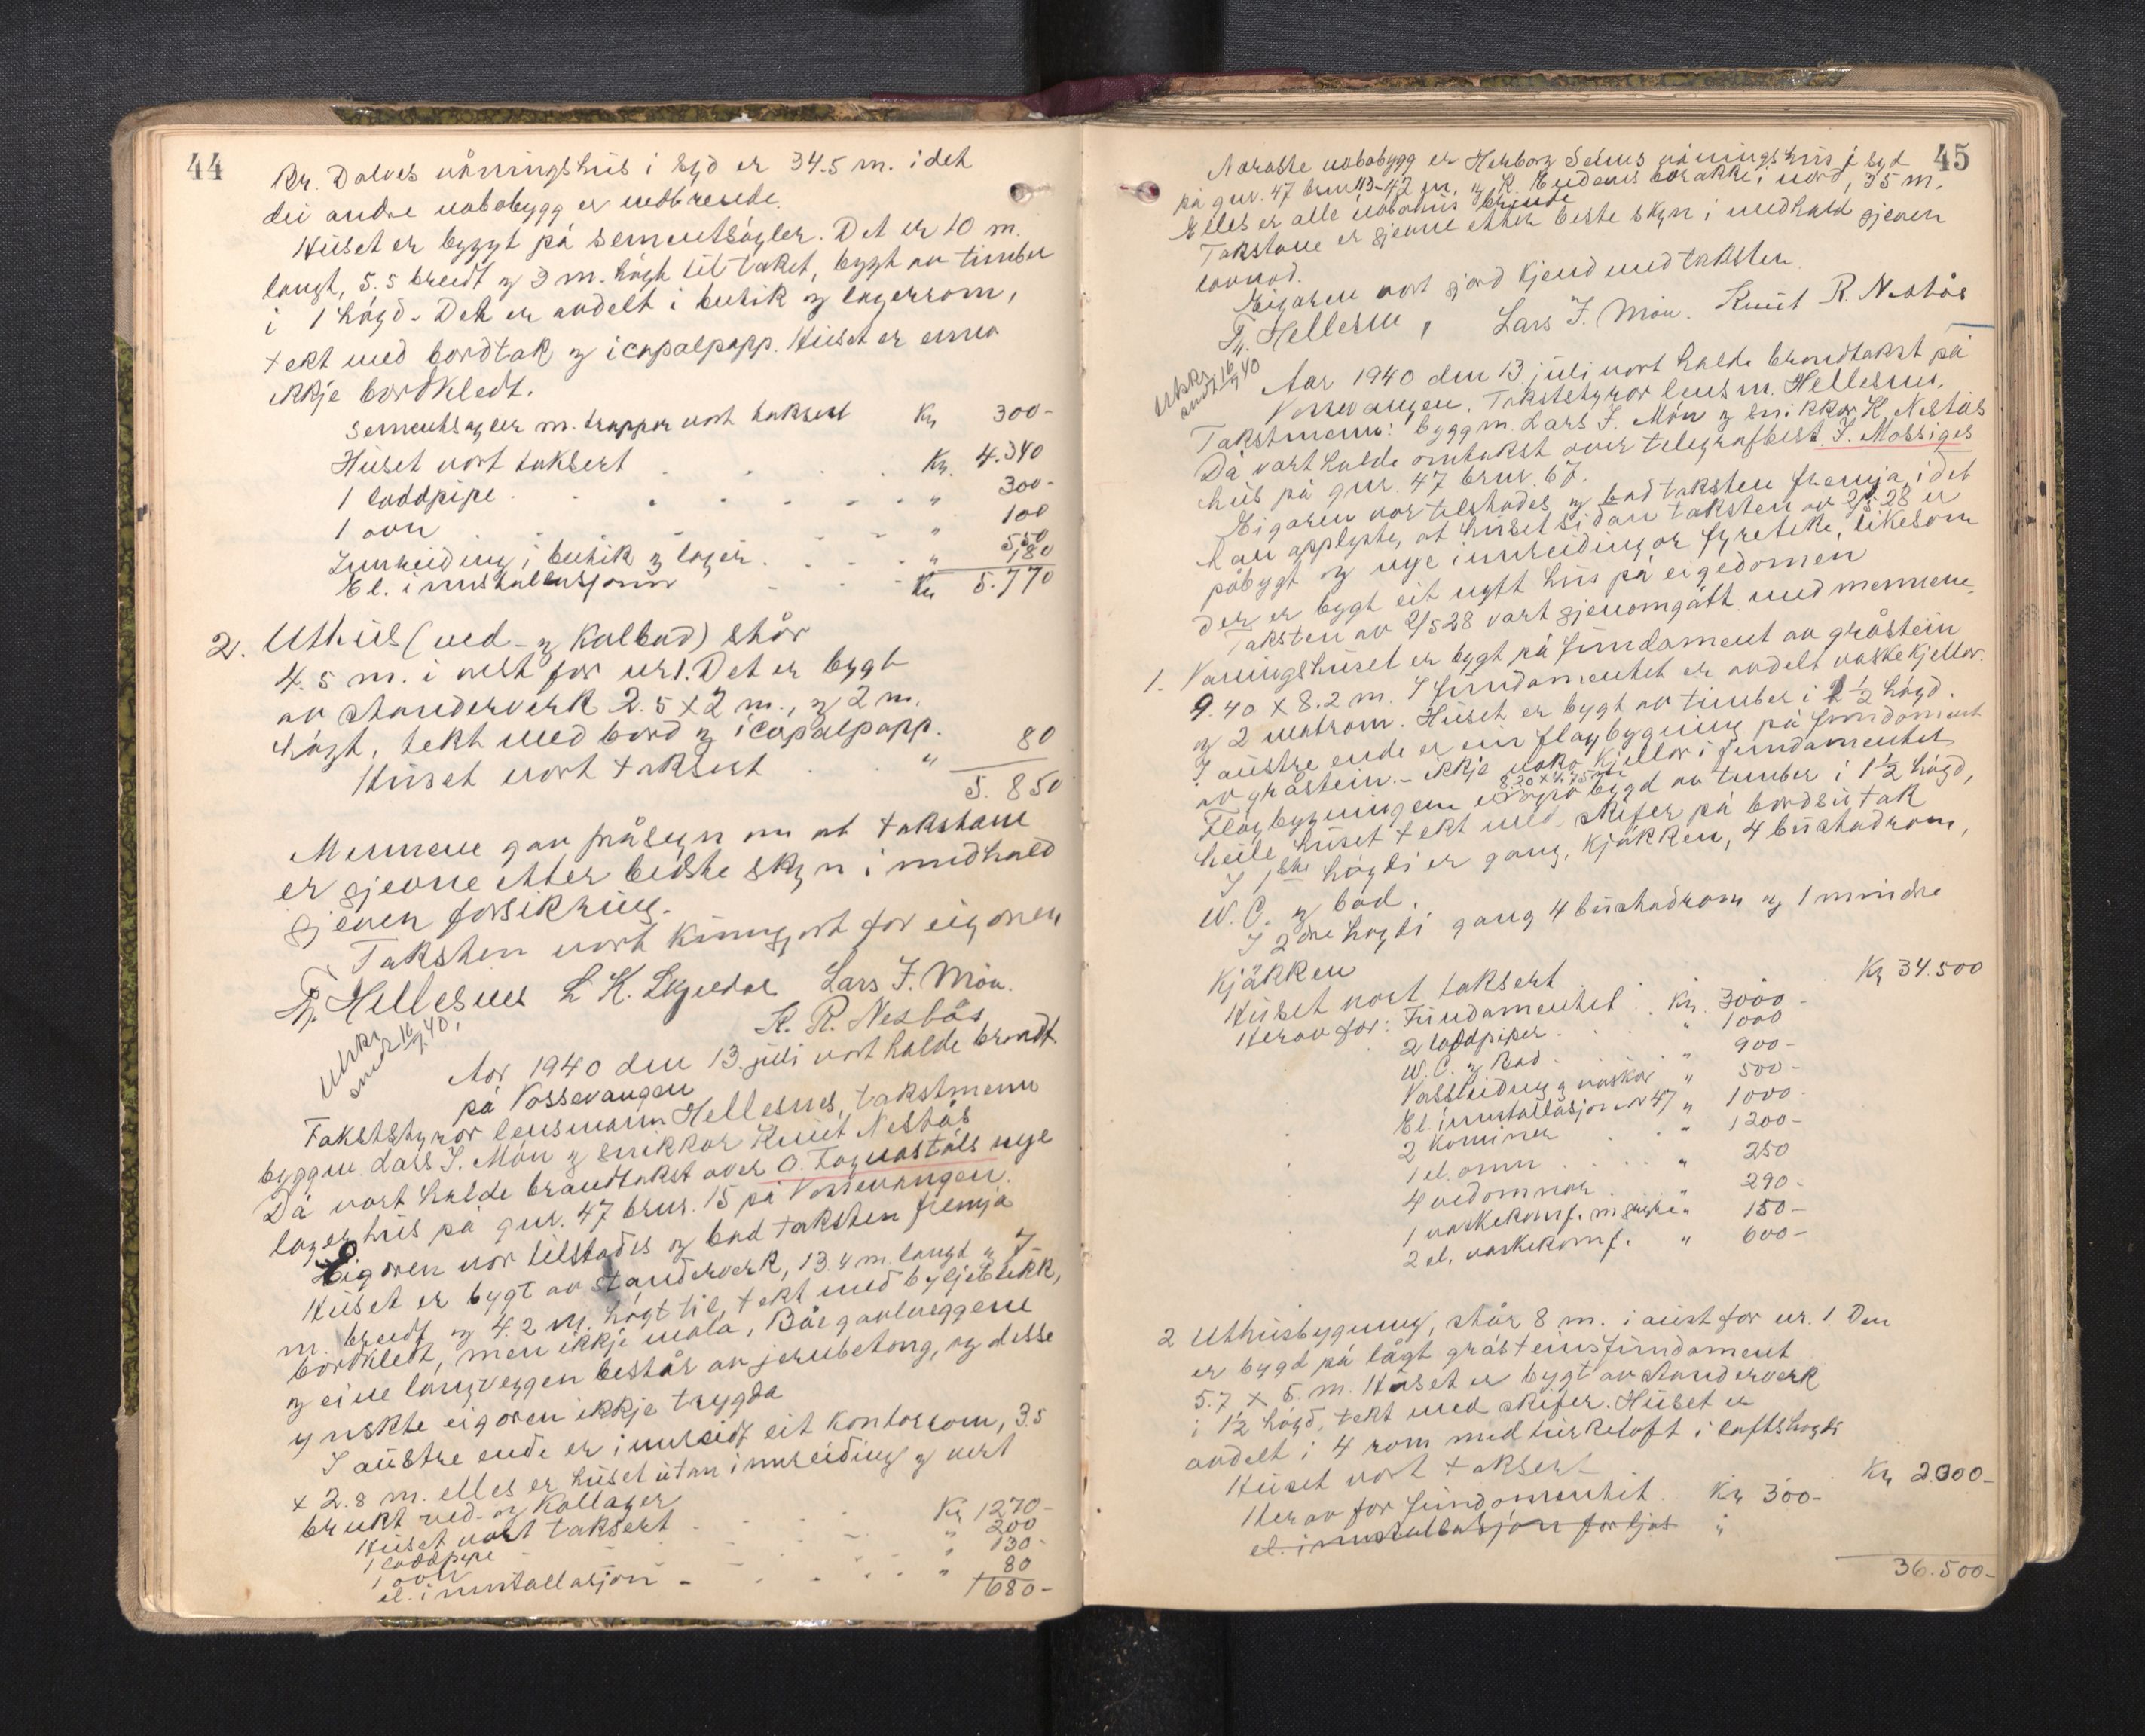 44
Br. Dalves våningshus i syd er 34.5 m. i det
dei andre nabobygg er nedbrende.
Huset er bygyt på sementsøyler. Det er 10 m.
langt, 5.5 breidt og 3 m. høgt til taket, bygt av timber
i 1 høgd. Det er avdelt i butik og lagerrom,
tekt med bordtak og icopalpapp. Huset er enno
ikkje bordkledt.
Sementsøyler m. trappor vart taksert Kr. 300-
Huset vart taksert Kr. 4.340
1 loddpipe " 300-
1 ovn " 100
Innreiding i butik og lager " 550
El. innstallasjonen " 180
Kr 5.770
2. Uthus (ved- og Kolbod) står
4.5 m. i vest for nr 1. Det er bygt
av standerverk 2.5 x 2 m., og 2 m.
høgt, tekt med bord og icopalpapp.
Huset vart taksert " 80
5.850
Mennene gav påsegn um at takstane
er gjevne etter beidste skyn i medhald
gjeven forsikring.
Taksten vart kunngjort for eigaren
Hellesnes L K. Skjeldal Lars J. Møn.
K. R. Nesbås
Utskr.
sendt 16/9 40.
Aar 1940 den 13. juli vart halde brandt.
på Vossevangen
Takststyror lensmann Hellesnes, takstmenn
byggm. Lars J. Møn og snikkar Knut Nesbås
Då vart halde brandtakst over O. Fagnastøls nye
lagerhus på gnr. 47 brnr. 15 på Vossevangen.
Eigaren var tilstades og bad taksten fremja
Huset er bygt av standerverk, 13.4 m. langt og 7-
m. breidt og 4.2 m. høgt til, tekt med bylgjeblekk,
bordkledt, men ikkje mala, Båe gavlveggene
og eine langveggen består av jernbetong, og desse
ynskte eigaren ikkje trygda
I austre ende er innreidt eit kontorrom, 3.5
x 2.8 m. elles er huset utan innreiding og vert
brukt ved- og Kollager
Huset vart taksert Kr 1270-
1 loddpipe " 200
1 ovn " 130-
el. innstallasjon - " 80
1680-
45
Næraste nabobygg er Herborg Selms våningshus i syd
på gnr. 47 brnr 113-42 m. og K. barakke i nord, 35 m.
Elles er alle nabohus brende
Takstane er gjevne etter beste skyn i medhald gjeven
lovnad.
Eigaren vart gjord kjend med taksten.
Hellesnes, Lars J. Møn. Knut R. Nesbås
Utskr.
sendt 16/9 40
Aar 1940 den 13. juli vart halde brandtakst på
Vossevangen. Takststyror lensm. Hellesnes.
Takstmenn: byggm. Lars J. Møn og snikkar K. Nesbås
Då vart halde omtakst over telegrafbest. J. Mossiges
hus på gnr. 47 brnr. 67.
Eigaren var tilstades og bad taksten fremja, i det
han opplyste, at huset sidan taksten av 2/5 28 er
påbygt og nye innreidingar fyreteke, likesom
der er bygt eit nytt hus på eigedomen
Taksten av 2/5 28 vart gjenomgått med mennene.
1. Vaningshuset er bygt på fundament av gråstein
9.40 x 8.2 m. I fundamentet er avdelt vaskekjellar
og 2 matrom. Huset er bygt av timber i 2 1/2 høgd.
I austre ende er ein fløybygning på fundament
av gråstein. - ikkje noko kjellar i fundamentet
8.20 x 4.75 m
Fløybygningen er også bygd av timber i 1 1/2 høgd,
heile huset tekt med skifer på bordsutak
I 1ste høgdi er gang, kjøkken, 4 bustadrom,
W.C. og bad.
I 2dre høgdi gang 4 bustadrom og 1 mindre
kjøkken
Huset vart taksert Kr 34.500
Herav for: Fundamentet Kr. 3000-
2 loddpiper " 1000
W.C. og Bad " 900-
Vassleiding og vaskar " 500-
El. innstallasjon nr 47 " 1000-
2 Kaminer " 1200-
1 el. omn " 250
4 vedomnar " 290-
1 vaskekomf. m " 150-
2 el. vaskekomf. " 600-
2 Uthusbygning, står 8 m. i aust for nr. 1. Den
er bygd på lågt gråsteinsfundament
5.7 x 5. m. Huset er bygt av standerverk
i 1 1/2 høgd, tekt med skifer. Huset er
avdelt i 4 rom med turkeloft i loftshøgdi
Huset vart taksert Kr 2.000-
Herav for fundamentet Kr 300-
el. innstallasjon for ljos "
36.500-